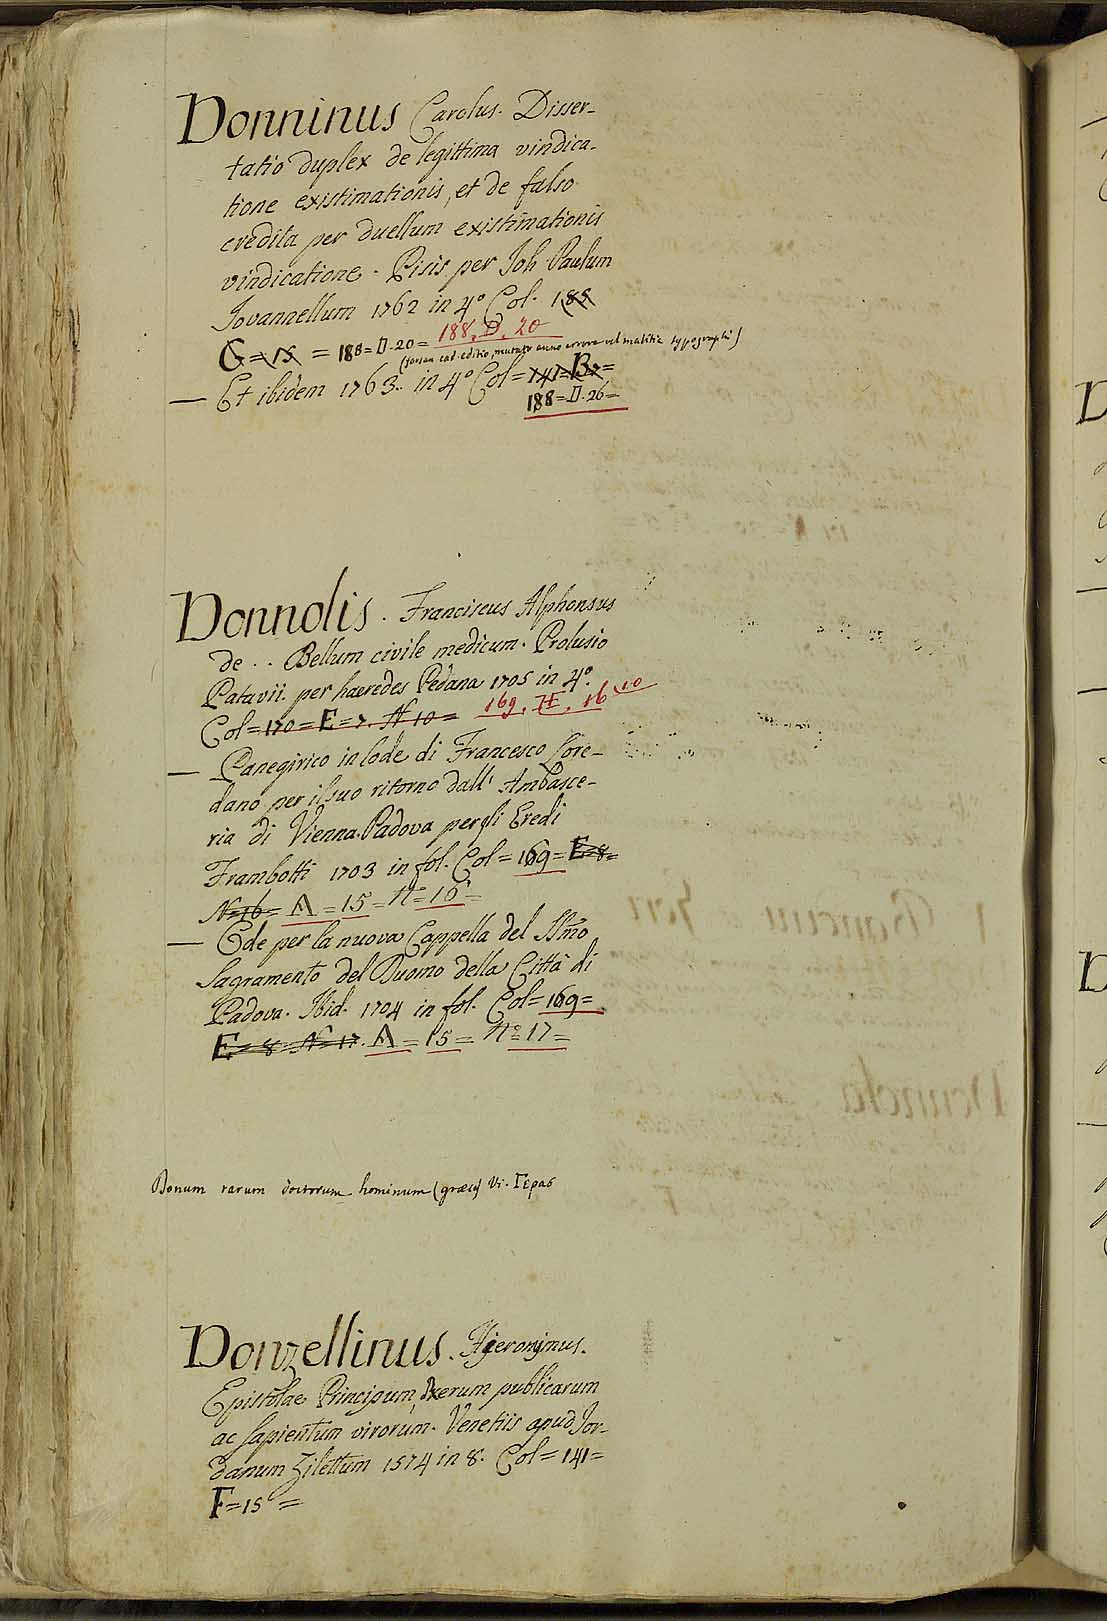 Donninus Carolus. Disser-
tatio duplex de legittima vindica-
tione existimationis, et de falso
credita per duellum existimationis
vindicatione. Pisis per Joh Paulum
Jovannellum 1762 in 4° Col. 185
G=15 = 188=D.20= 188. D. 20
(forsan ead. editio, mutato anno errore vel malitia typographi)
— Et ibidem 1763. in 4° Col=141=B7=
188=D.26=
Donnolis. Franciscus Alphonsus
de . . Bellum civile medicum. Prolusio
Patavii. per haeredes Pedana 1705 in 4°.
Col=170=E=7. N 10= 169. E. 16 n.10
— Panegirico in lode di Francesco Lore-
dano per il suo ritorno dall' Ambasce-
ria di Vienna. Padova per gli Eredi
Frambotti 1703 in fol. Col=169=E=8=
N=16= A=15=N°=16=
— Ode per la nuova Cappella del SSmo
Sagramento del Duomo della Città di
Padova. Ibid. 1704 in fol. Col=169=
E=8=N=17. A=15=N°=17=
Donum rarum doctorum hominum (graece) Vi. Γέρας
Donzellinus. Hieronymus.
Epistolae Principum, rerum publicarum
ac sapientum virorum. Venetiis apud Jor-
danum Zilettum 1574 in 8. Col=141=
F=15=